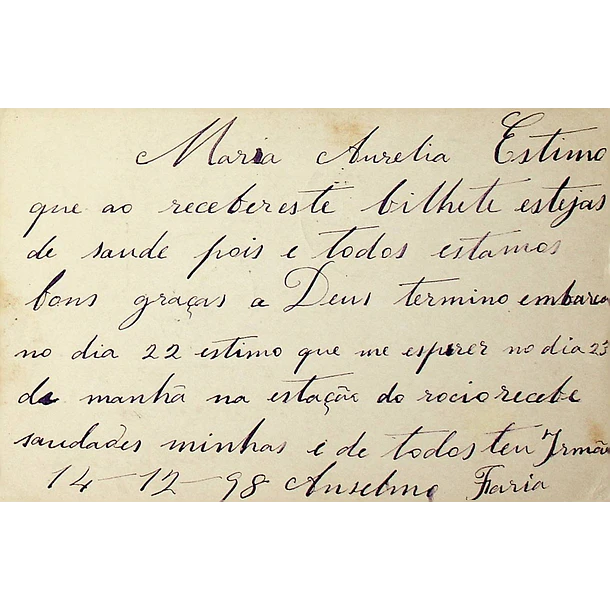 Maria Aurelia Estimo
que ao recebereste bilhete estejas
de saude pois e todos estamos
bons graças a Deus termino embarca
no dia 22 estimo que me esperer no dia 23
de manhã na estação do rocio recebe
saudades minhas e de todos teu Irmão
14-12-98 Anselmo Faria